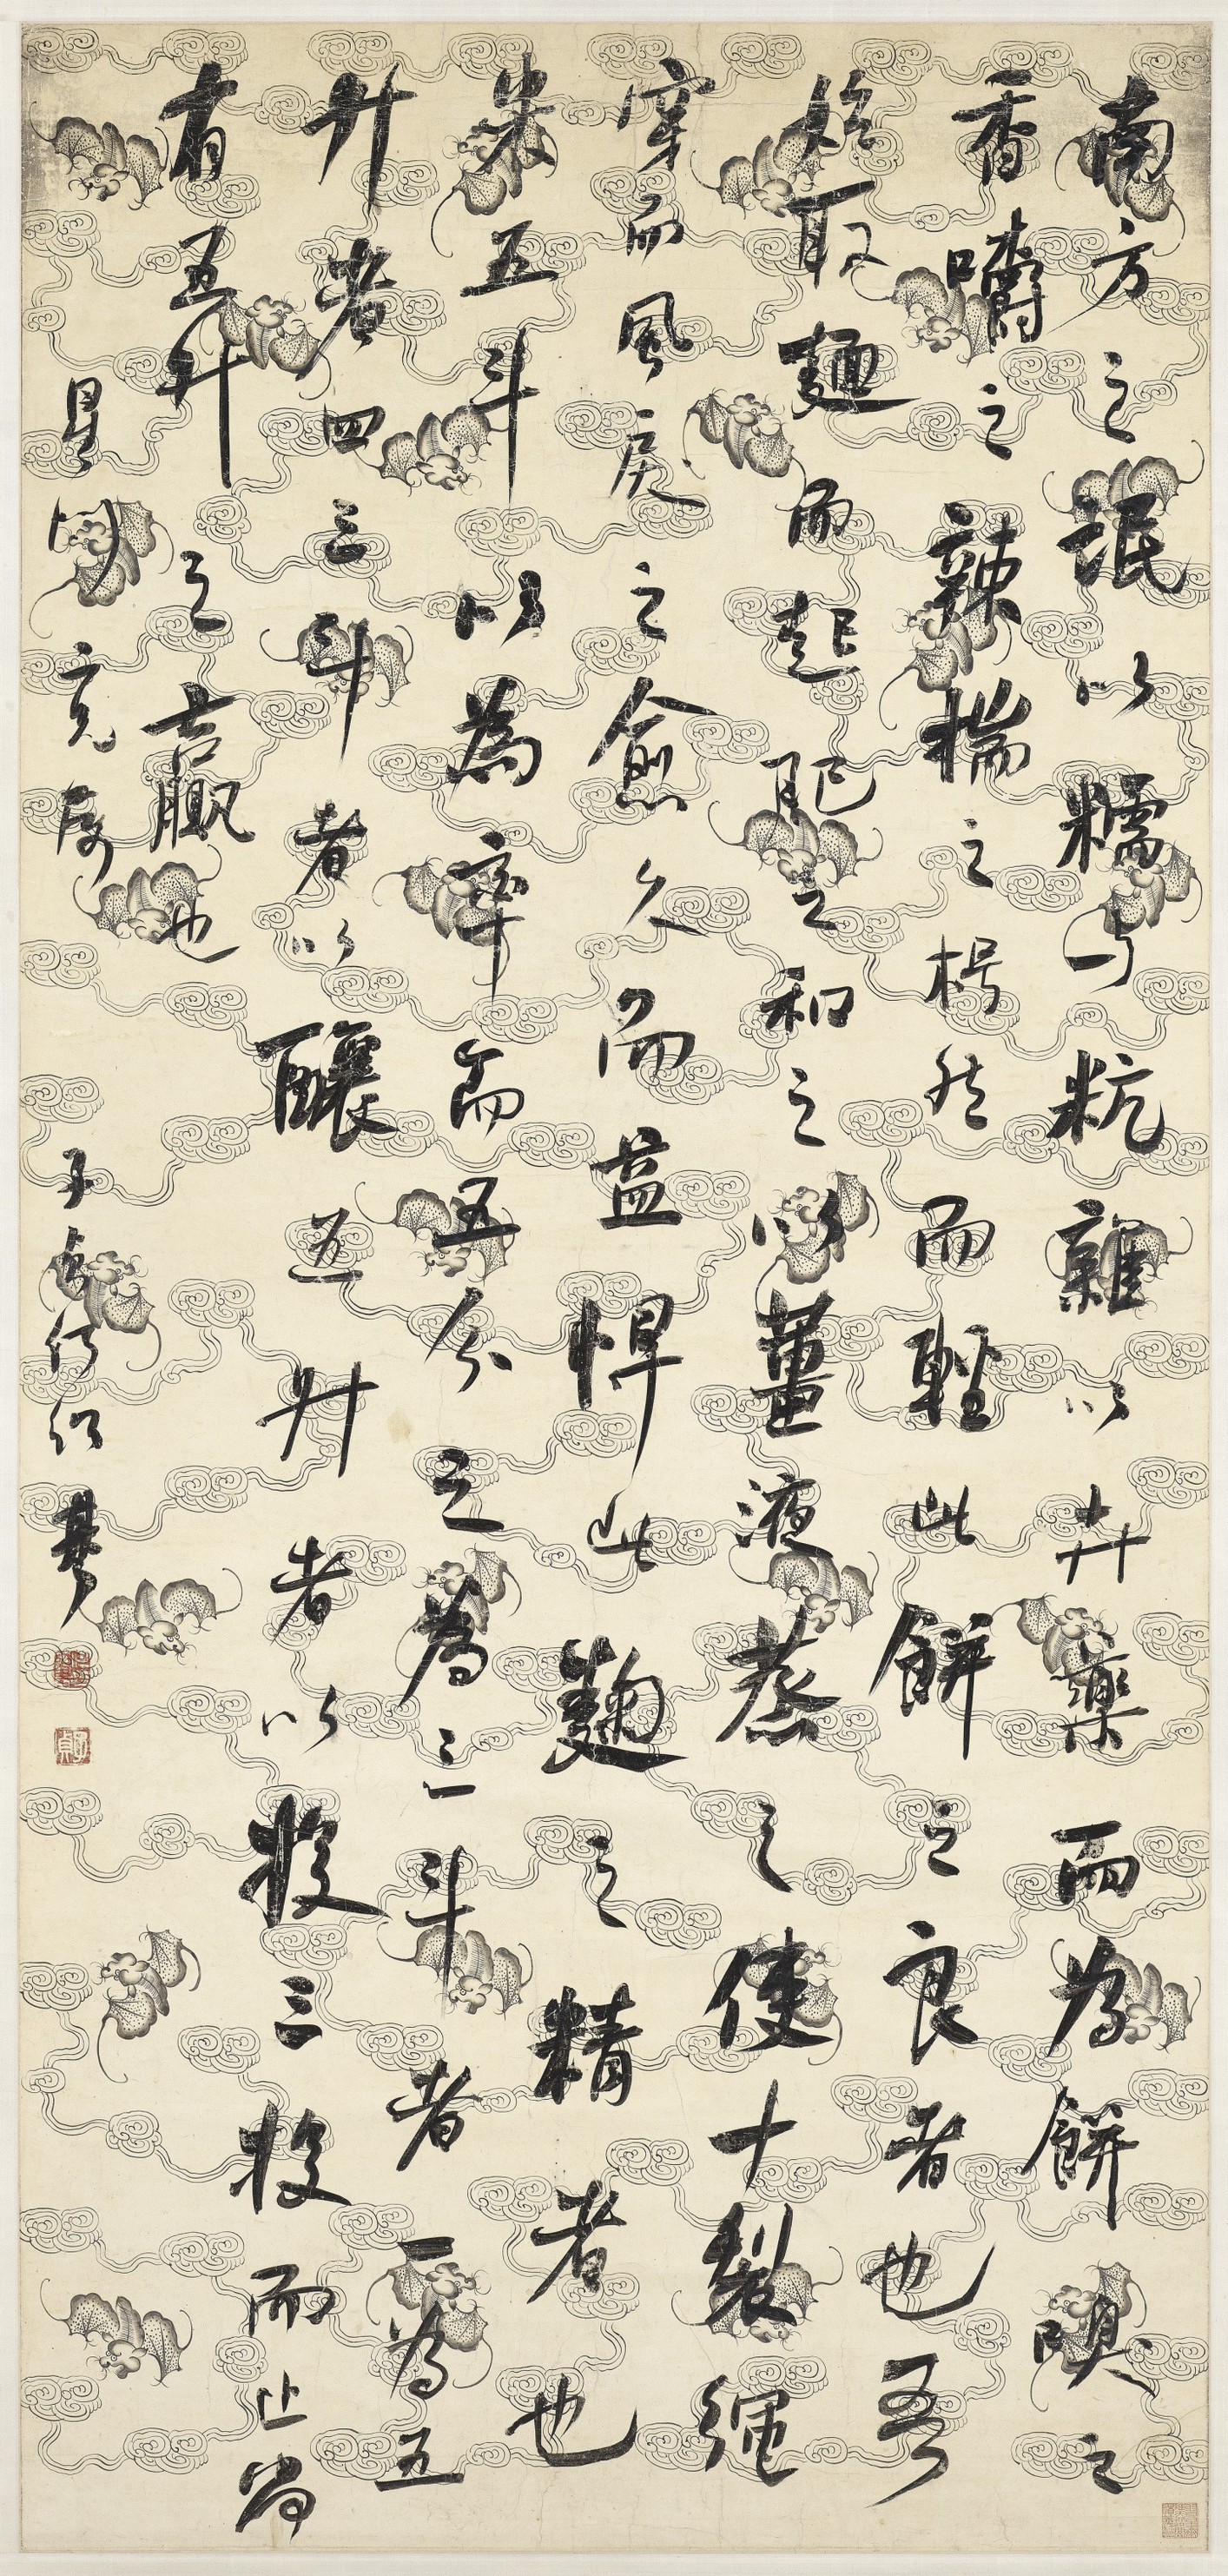 南方之氓以糯与粇雜以卉藥而為餅嗅之
香嚼之辣揣之枵然而輕此餅之良者也吾
始取麵而起肥之和之以薑液蒸之使十裂繩
穿而風戾之愈久而益悍此麴之精者也
米五斗以為率而五分之為三斗者一為五
升者四三斗者以釀五升者以投三投而止尚
有五升之贏也
星 子貞何紹基
子貞